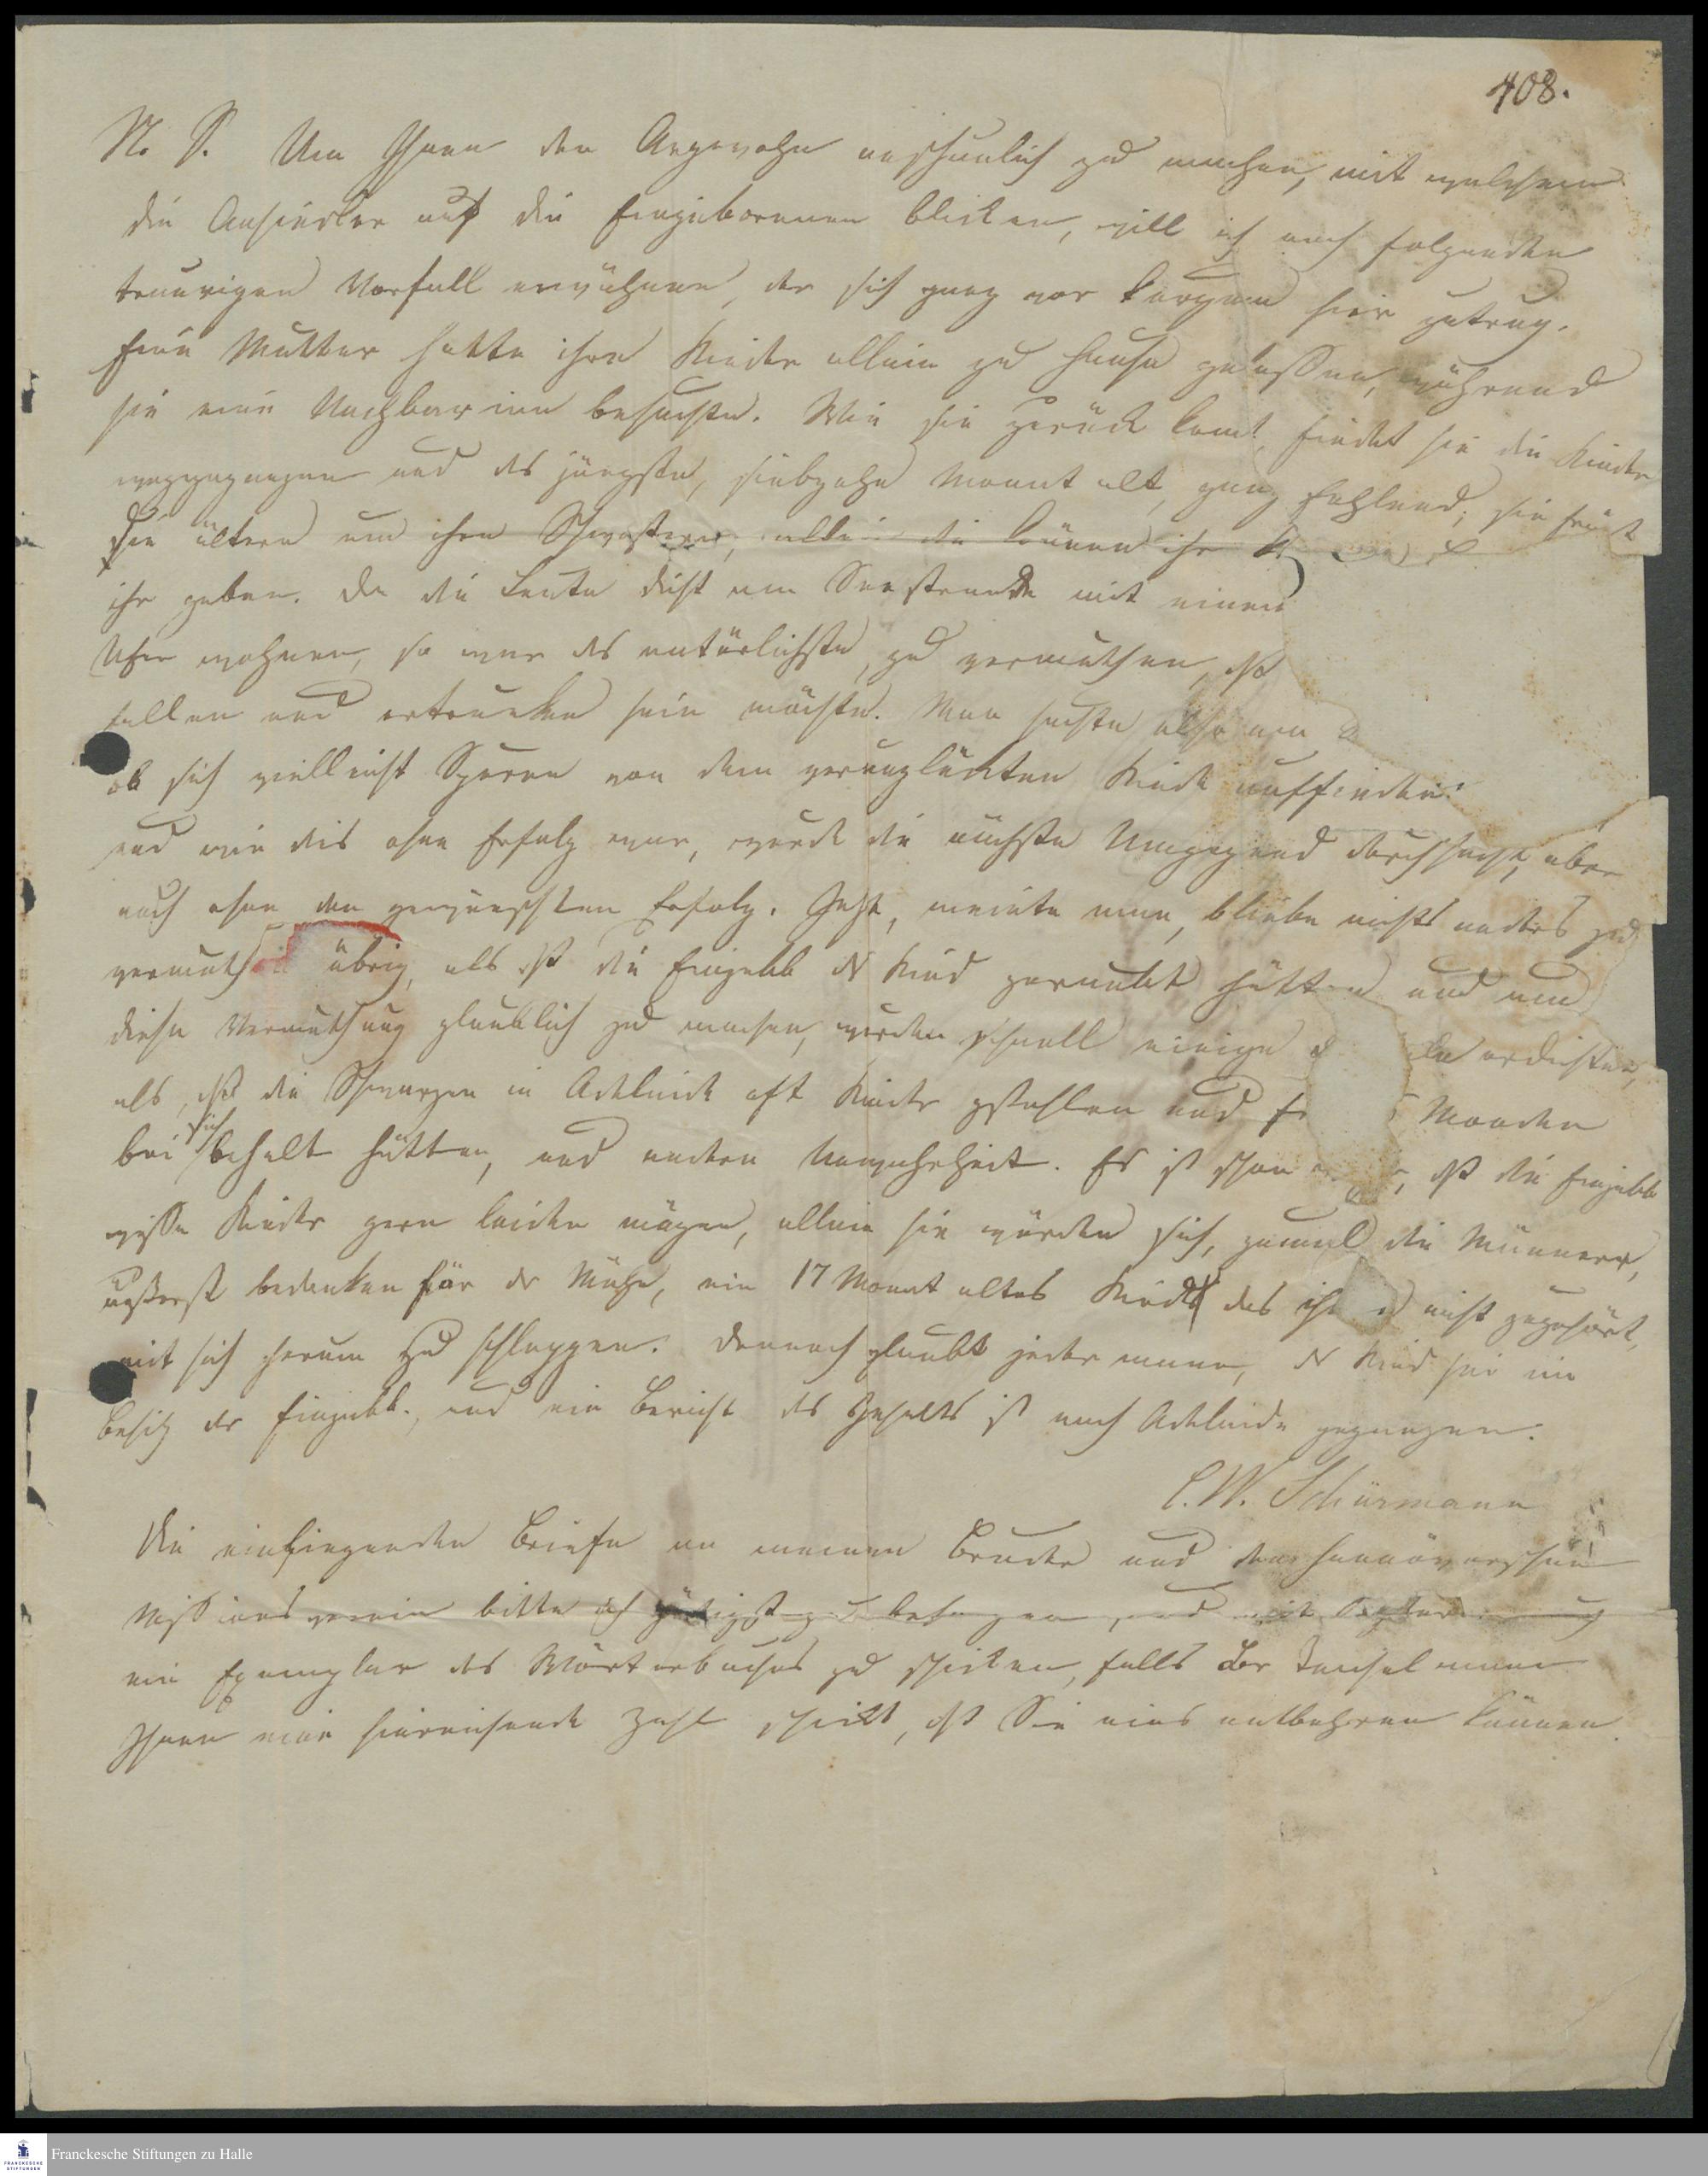 408.
N. S. Um Ihnen den Argwohn anschaulich zu machen, mit welchem
die Ansiedler auf die Eingebornen blicken, will ich noch folgenden
traurigen Vorfall erwähnen, der sich ganz vor kurzem hier zutrug.
Eine Mutter hatte ihre Kinder allein zu Hause gelassen, während
sie eine Nachbarinn besuchte. Wie sie zurück komt, findet sie die Kinder
weggegangen und das jüngste, siebzehn Monat alt, ganz fehlend; sie frägt
die ältern um ihre Schwester, allein die können ihr
ihr geben. Da die Leute dicht am Seestrande mit einem
Ufer wohnen, so war das natürlichste, zu vermuthen, dß
fallen und ertrunken sein möchte. Man suchte also am
ob sich vielleicht Spuren von dem verunglückten Kinde auffinden
und wie dies ohne Erfolg war, wurde die nächste Umgegend durchsucht, aber
auch ohne den gewünschten Erfolg. Jetzt, meinte man, bliebe nichts anders zu
vermuthen übrig, als dß die Eingebb. ds Kind geraubt hätten und um
diese Vermuthung glaublich zu machen, wurden schnell einige erdichtet,
als, dß die Schwarzen in Adelaide oft Kinder gestohlen und Monden
bei sich behalt hätten, und andere Unwahrheit. Es ist schon, dß die Eingebb
weiße Kinder gern leiden mögen, allein sie würden sich, zumal die Männer,
äußerst bedanken für der Mühe, ein 17 Monat altes Kind das ihnen nicht zugehört,
mit sich herum zu schleppen. Dennoch glaubt jedermann, ds Kind sei im
Besitz der Eingebb., und ein Bericht des Inhalts ist nach Adelaide gegangen.
C. W. Schürmann
Die einliegenden Briefe an meinen Bruder und den hannöverschen
Missionsverein bitte ich gütigst zu besorgen, und mit
ein Exemplar des Wörterbuches zu schicken, falls Br Teichelmann
Ihnen eine hinreichende Zahl schickt, dß Sie eins entbehren können.
Franckesche Stiftungen zu Halle
FRANCKESCHE
STIFTUNGEN